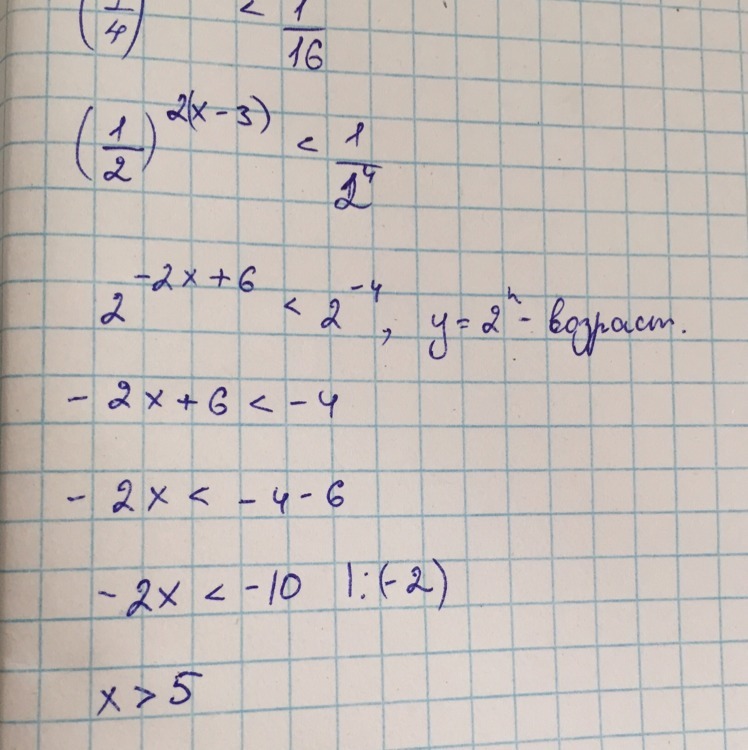 (1/4) < 1/16
(1/2)^2(x-3) < 1/2^4
2^-2x+6 < 2^-4, y=2^x - возраст.
-2x+6 < -4
-2x < -4-6
-2x < -10 |:(-2)
x > 5